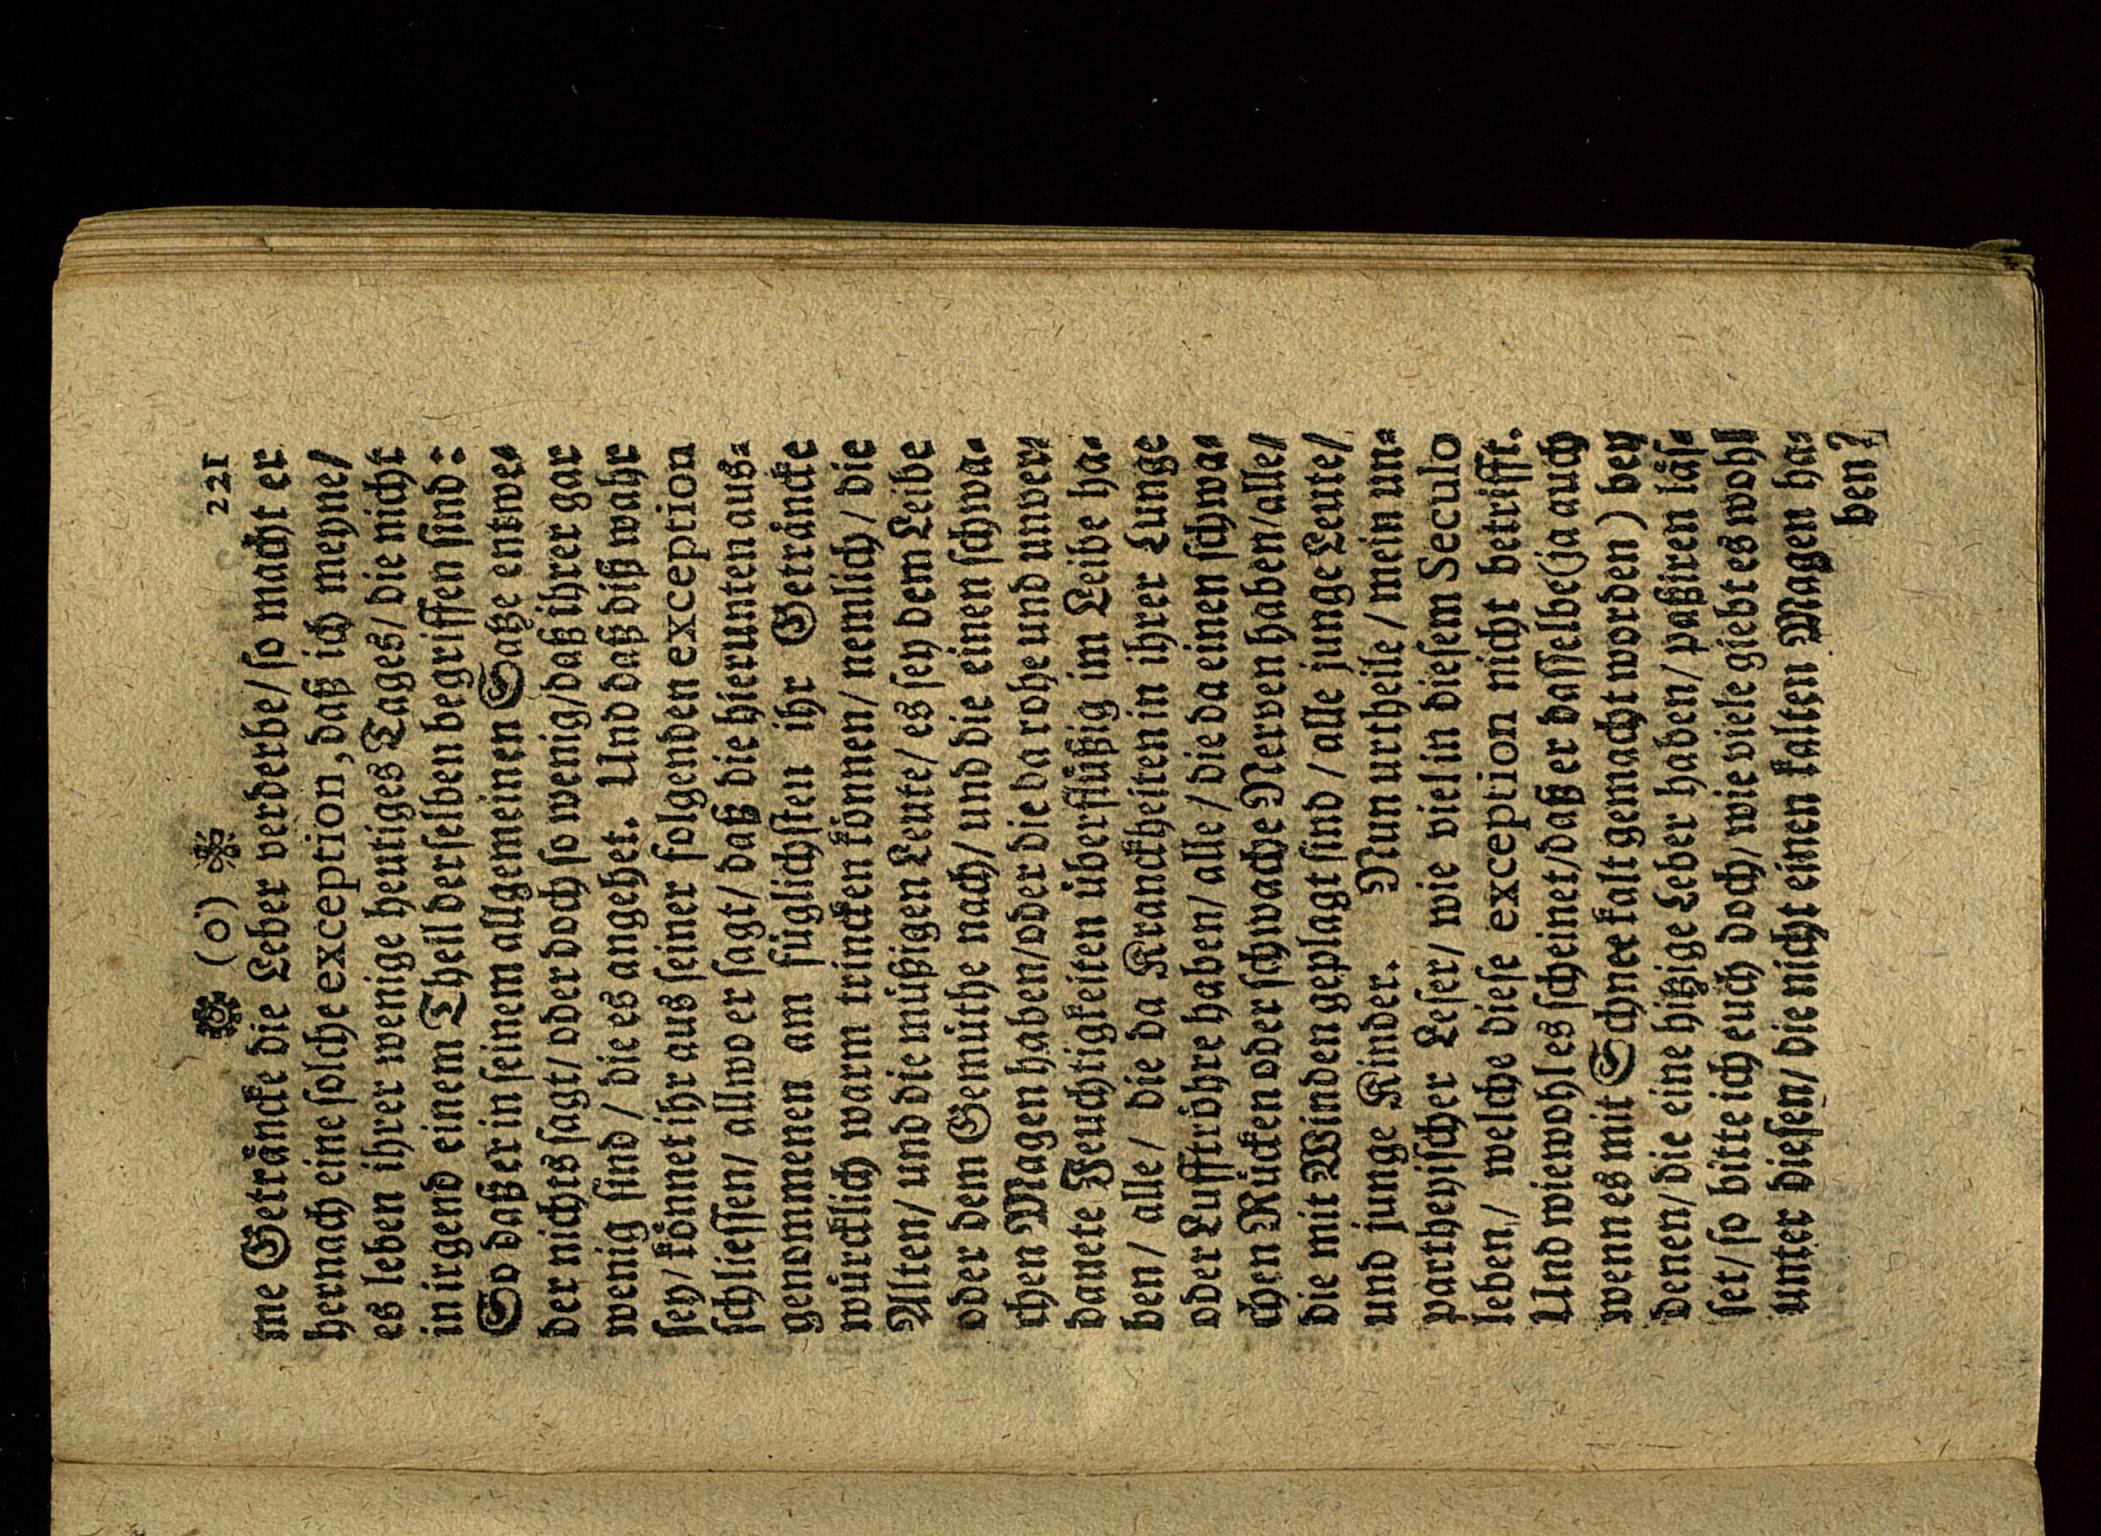 ❀ (o) ❀ 221
me Getråncke die Leber verderbe/ so macht er
hernach eine solche exception, daß ich meyne/
es leben ihrer wenige heutiges Tages/ die nicht
in irgend einem Theil derselben begriffen sind:
So daß er in seinem allgemeinen Satze entwe-
der nichts sagt/ oder doch so wenig/ daß ihrer gar
wenig sind / die es angehet. Und daß diß wahr
sey/ kônnet ihr aus seiner folgenden exception
schliessen/ allwo er sagt/ daß die hierunten aus-
genommenen am fůglichsten ihr Getråncke
wůrcklich warm trincken kônnen/ nemlich / die
Alten/ und die můßigen Leute/ es sey dem Leibe
oder dem Gemůthe nach/ und die einen schwa-
chen Magen haben/ oder die da rohe und unver-
dauete Feuchtigkeiten ůberflůßig im Leibe ha-
ben / alle / die da Kranckheiten in ihrer Lunge
oder Lufftrôhre haben/ alle / die da einen schwa-
chen Růcken oder schwache Nerven haben/ alle/
die mit Winden geplagt sind / alle junge Leute/
und junge Kinder. Nun urtheile / mein un-
partheyischer Leser/ wie viel in diesem Seculo
leben/ welche diese exception nicht betrifft.
Und wiewohl es scheinet/ daß er dasselbe (ja auch
wenn es mit Schnee kalt gemacht worden ) bey
denen/ die eine hitzige Leber haben/ paßiren låß-
set/ so bitte ich euch doch/ wie viele giebt es wohl
unter diesen/ die nicht einen kalten Magen ha-
ben?